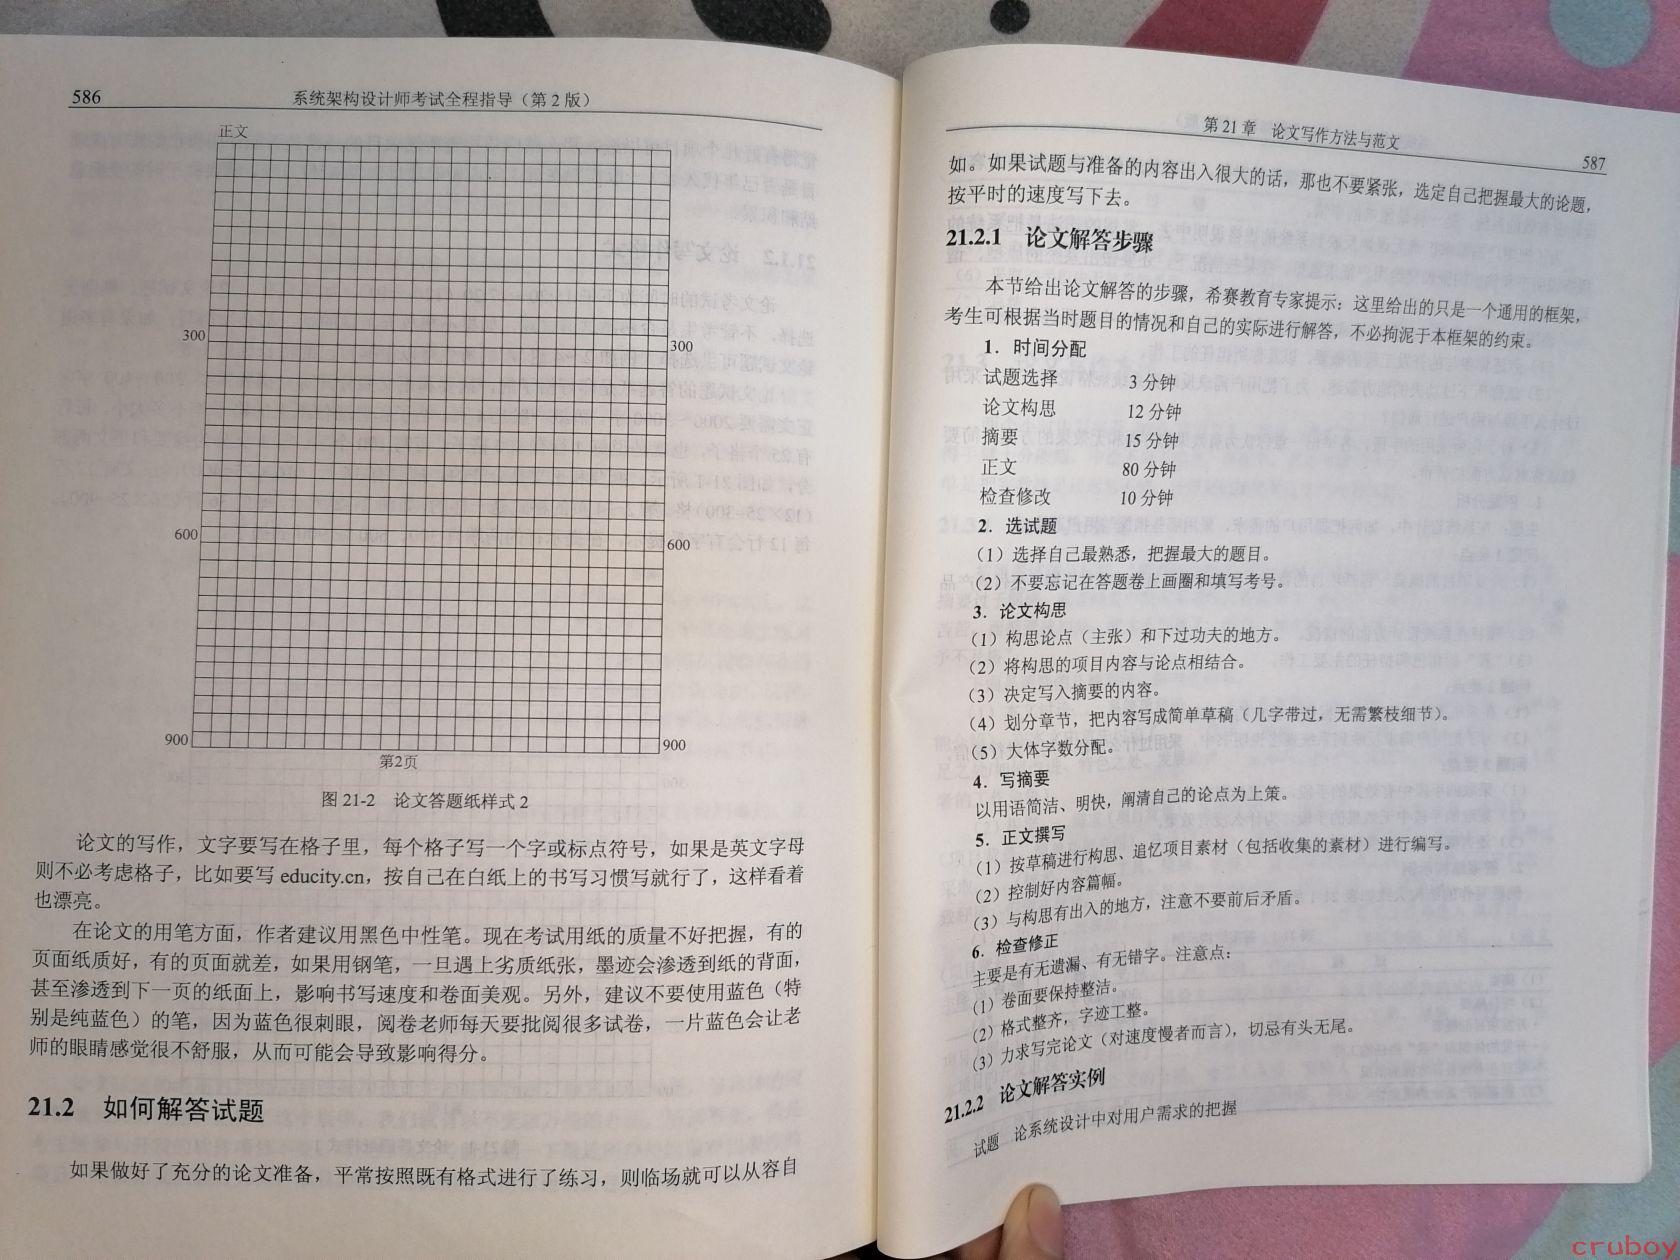 586
系统架构设计师考试全程指导（第2版）
正文
300
300
600
600
900
900
第2页
图 21-2 论文答题纸样式 2
论文的写作，文字要写在格子里，每个格子写一个字或标点符号，如果是英文字母
则不必考虑格子，比如要写 educity.cn，按自己在白纸上的书写习惯写就行了，这样看着
也漂亮。
在论文的用笔方面，作者建议用黑色中性笔。现在考试用纸的质量不好把握，有的
页面纸质好，有的页面就差，如果用钢笔，一旦遇上劣质纸张，墨迹会渗透到纸的背面，
甚至渗透到下一页的纸面上，影响书写速度和卷面美观。另外，建议不要使用蓝色（特
别是纯蓝色）的笔，因为蓝色很刺眼，阅卷老师每天要批阅很多试卷，一片蓝色会让老
师的眼睛感觉很不舒服，从而可能会导致影响得分。
21.2 如何解答试题
如果做好了充分的论文准备，平常按照既有格式进行了练习，则临场就可以从容自
第 21 章 论文写作方法与范文
587
如。如果试题与准备的内容出入很大的话，那也不要紧张，选定自己把握最大的论题，
按平时的速度写下去。
21.2.1 论文解答步骤
本节给出论文解答的步骤，希赛教育专家提示：这里给出的只是一个通用的框架，
考生可根据当时题目的情况和自己的实际进行解答，不必拘泥于本框架的约束。
1．时间分配
试题选择 3 分钟
论文构思 12 分钟
摘要 15 分钟
正文 80 分钟
检查修改 10 分钟
2．选试题
（1）选择自己最熟悉，把握最大的题目。
（2）不要忘记在答题卷上画圈和填写考号。
3．论文构思
（1）构思论点（主张）和下过功夫的地方。
（2）将构思的项目内容与论点相结合。
（3）决定写入摘要的内容。
（4）划分章节，把内容写成简单草稿（几字带过，无需繁枝细节）。
（5）大体字数分配。
4．写摘要
以用语简洁、明快，阐清自己的论点为上策。
5．正文撰写
（1）按草稿进行构思、追忆项目素材（包括收集的素材）进行编写。
（2）控制好内容篇幅。
（3）与构思有出入的地方，注意不要前后矛盾。
6．检查修正
主要是有无遗漏、有无错字。注意点：
（1）卷面要保持整洁。
（2）格式整齐，字迹工整。
（3）力求写完论文（对速度慢者而言），切忌有头无尾。
21.2.2 论文解答实例
试题 论系统设计中对用户需求的把握
cruboy